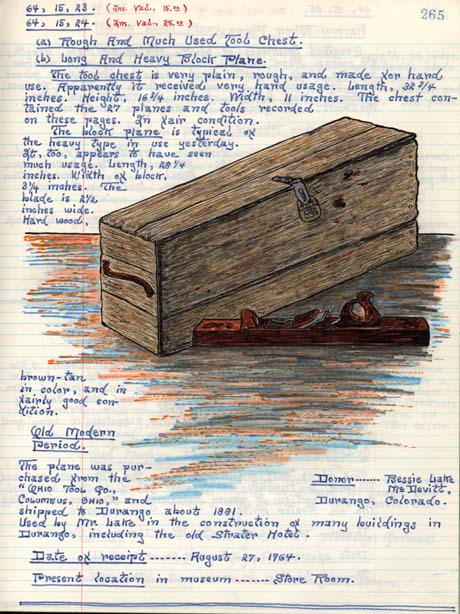 265
64; 15, 23. (Ins. Val., 15.00)
64; 15, 24. (Ins. Val., 25.00)
(a) Rough And Much Used Tool Chest.
(b) Long And Heavy Block Plane.
The tool chest is very plain, rough, and made for hard
use. Apparently it received very hard usage. Length, 32 3/4
inches. Height, 16 1/4 inches. Width, 11 inches. The chest con-
tained the 27 planes and tools recorded
on these pages. In fair condition.
The block plane is typical of
the heavy type in use yesterday.
It, too, appears to have seen
much usage. Length, 28 1/4
inches. Width of block,
3 1/4 inches. The
blade is 2 1/2
inches wide.
Hard wood,
brown-tan
in color, and in
fairly good con-
dition.
Old Modern
Period.
The plane was pur-
chased from the
"Ohio Tool Co.,
Columbus, Ohio," and
shipped to Durango about 1881.
Donor ------ Bessie Lake
McDevitt,
Durango, Colorado.
Used by Mr. Lake in the construction of many buildings in
Durango, including the old Strater Hotel.
Date of receipt ------- August 27, 1964.
Present location in museum ------- Store Room.